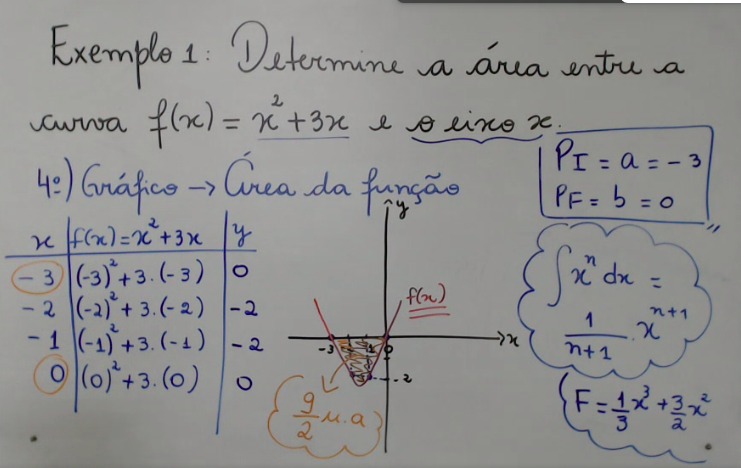 Exemplo 1: Determine a área entre a
curva f(x) = x² + 3x e o eixo x.
PI = a = -3
PF = b = 0
4º) Gráfico → Área da função
x | f(x) = x² + 3x | y
-3 | (-3)² + 3.(-3) | 0
-2 | (-2)² + 3.(-2) | -2
-1 | (-1)² + 3.(-1) | -2
0 | (0)² + 3.(0) | 0
y
f(x)
x
-3
0
-2
9/2 u.a
∫ xⁿ dx =
1/(n+1) . xⁿ⁺¹
F = 1/3 x³ + 3/2 x²